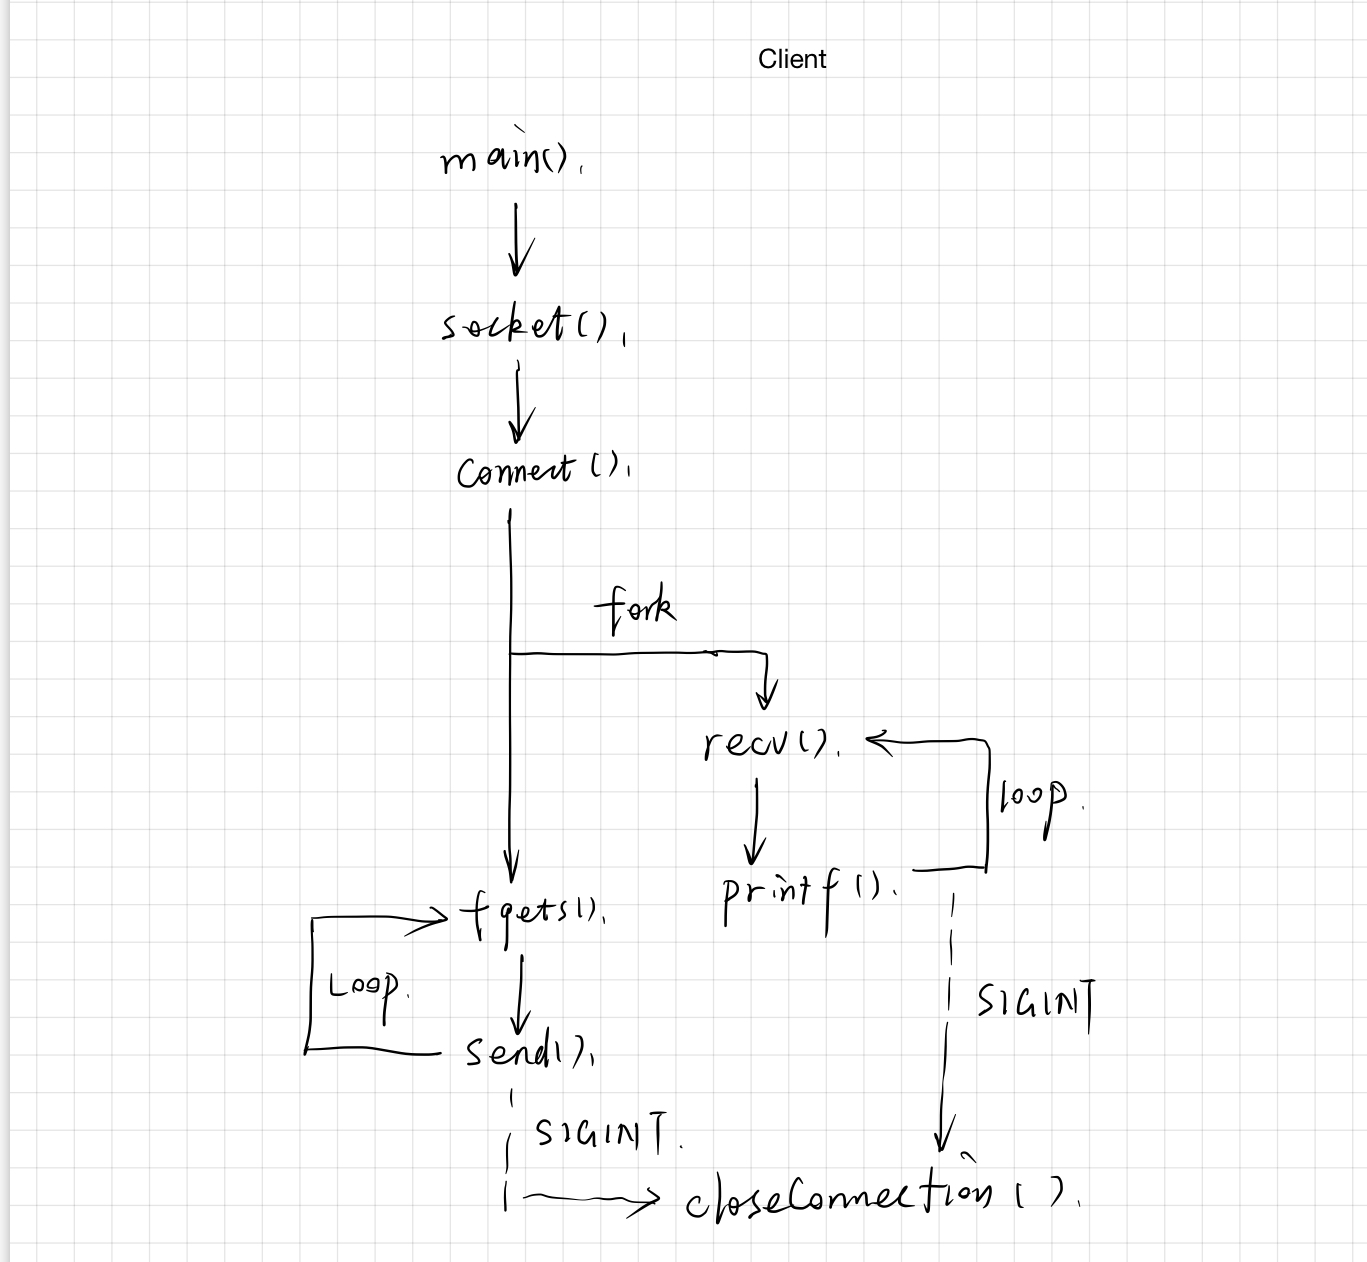 Client
main().
socket().
Connect().
fork
recv().
loop.
printf().
fgets().
Loop.
SIGINT
send().
SIGINT.
closeConnection().